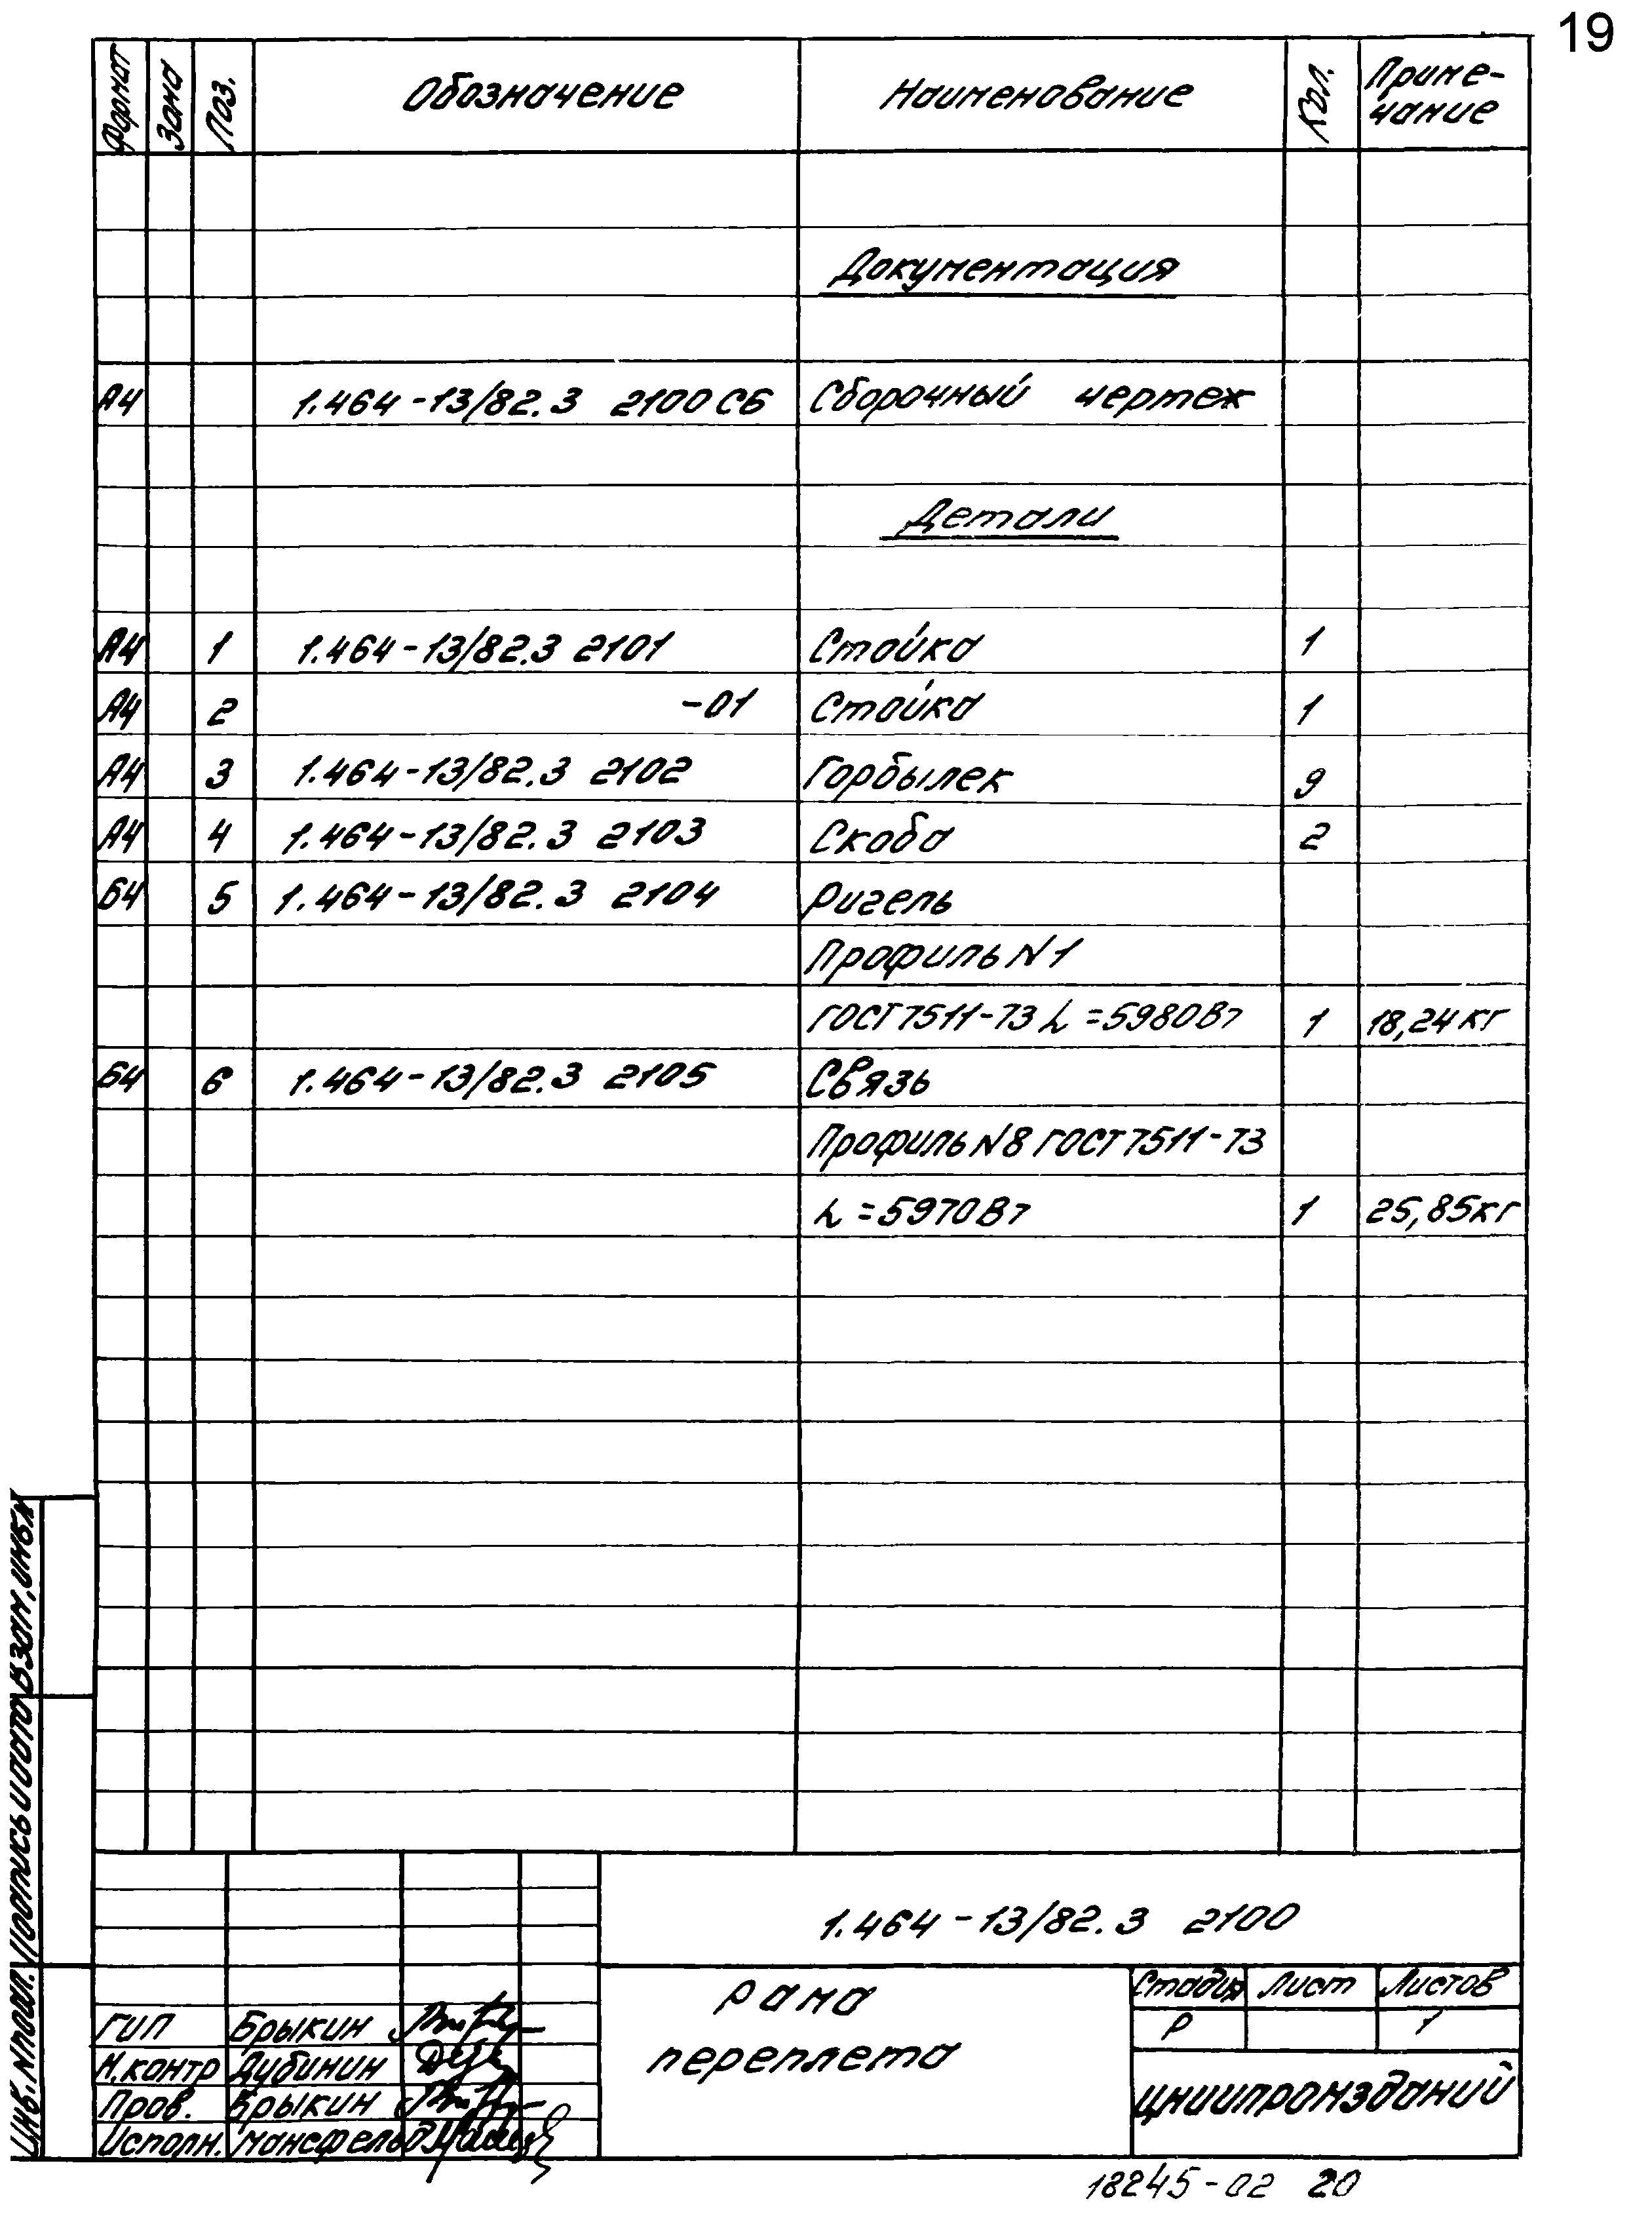 19
Формат Зона Поз. Обозначение Наименование Кол. Приме-
чание
Документация
А4 1.464-13/82.3 2100 СБ Сборочный чертеж
Детали
А4 1 1.464-13/82.3 2101 Стойка 1
А4 2 -01 Стойка 1
А4 3 1.464-13/82.3 2102 Горбылек 9
А4 4 1.464-13/82.3 2103 Скоба 2
Б4 5 1.464-13/82.3 2104 Ригель
Профиль N1
ГОСТ 7511-73 L=5980В7 1 18,24 кг
Б4 6 1.464-13/82.3 2105 Связь
Профиль N8 ГОСТ 7511-73
L=5970В7 1 25,85кг
Инв. N подл. Подпись и дата Взам. инв. N
1.464-13/82.3 2100
Рама
переплета
Стадия Лист Листов
Р 1
ЦНИИПРОМЗДАНИЙ
ГИП Брыкин
Н.контр Дубинин
Пров. Брыкин
Исполн. Мансфельд
18245-02 20